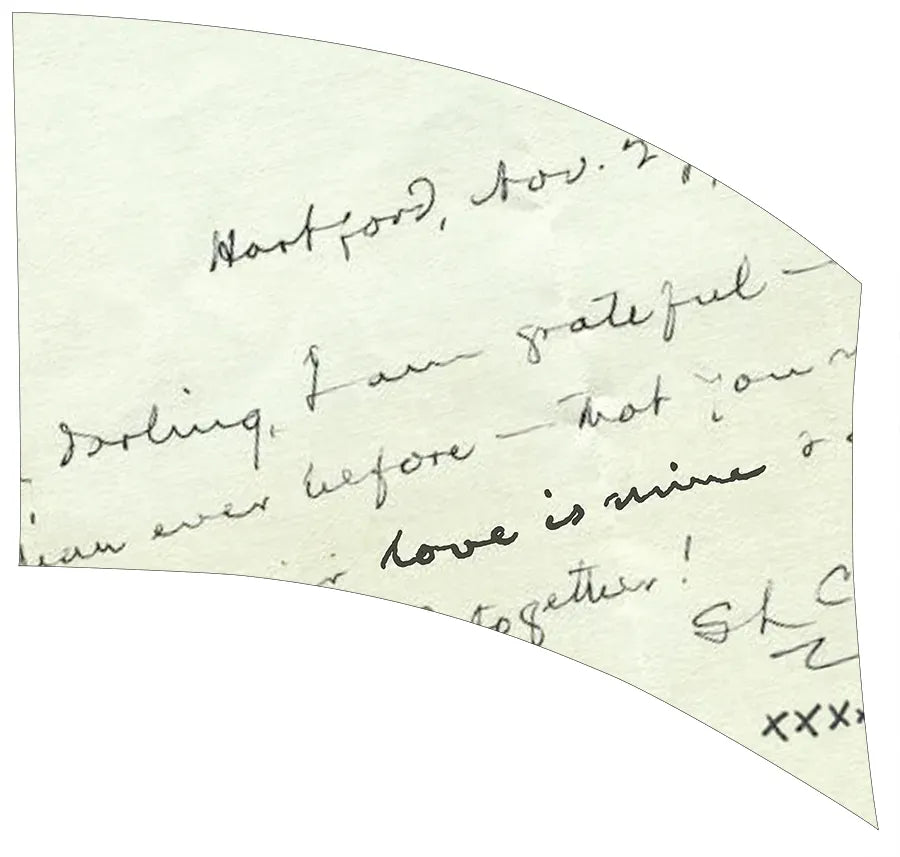 Hartford, Nov. 2
darling, I am grateful —
ever before — that you
love is mine
together!
S L C
xxx